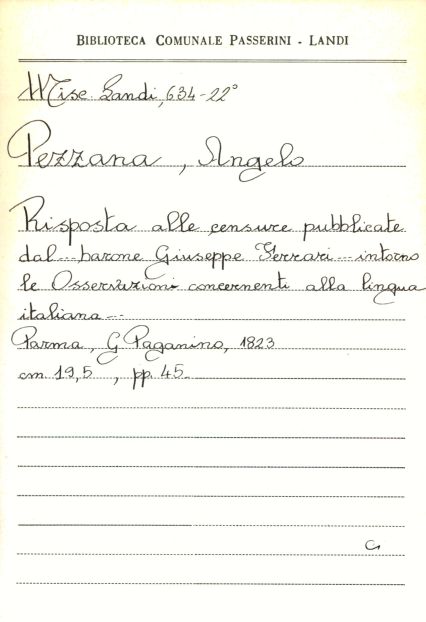 BIBLIOTECA COMUNALE PASSERINI - LANDI
Misc. Landi, 634-22°
Pezzana, Angelo
Risposta alle censure pubblicate
dal ... barone Giuseppe Ferrari ... intorno
le Osservazioni concernenti alla lingua
italiana ...
Parma, G. Paganino, 1823
cm. 19,5 , pp. 45.